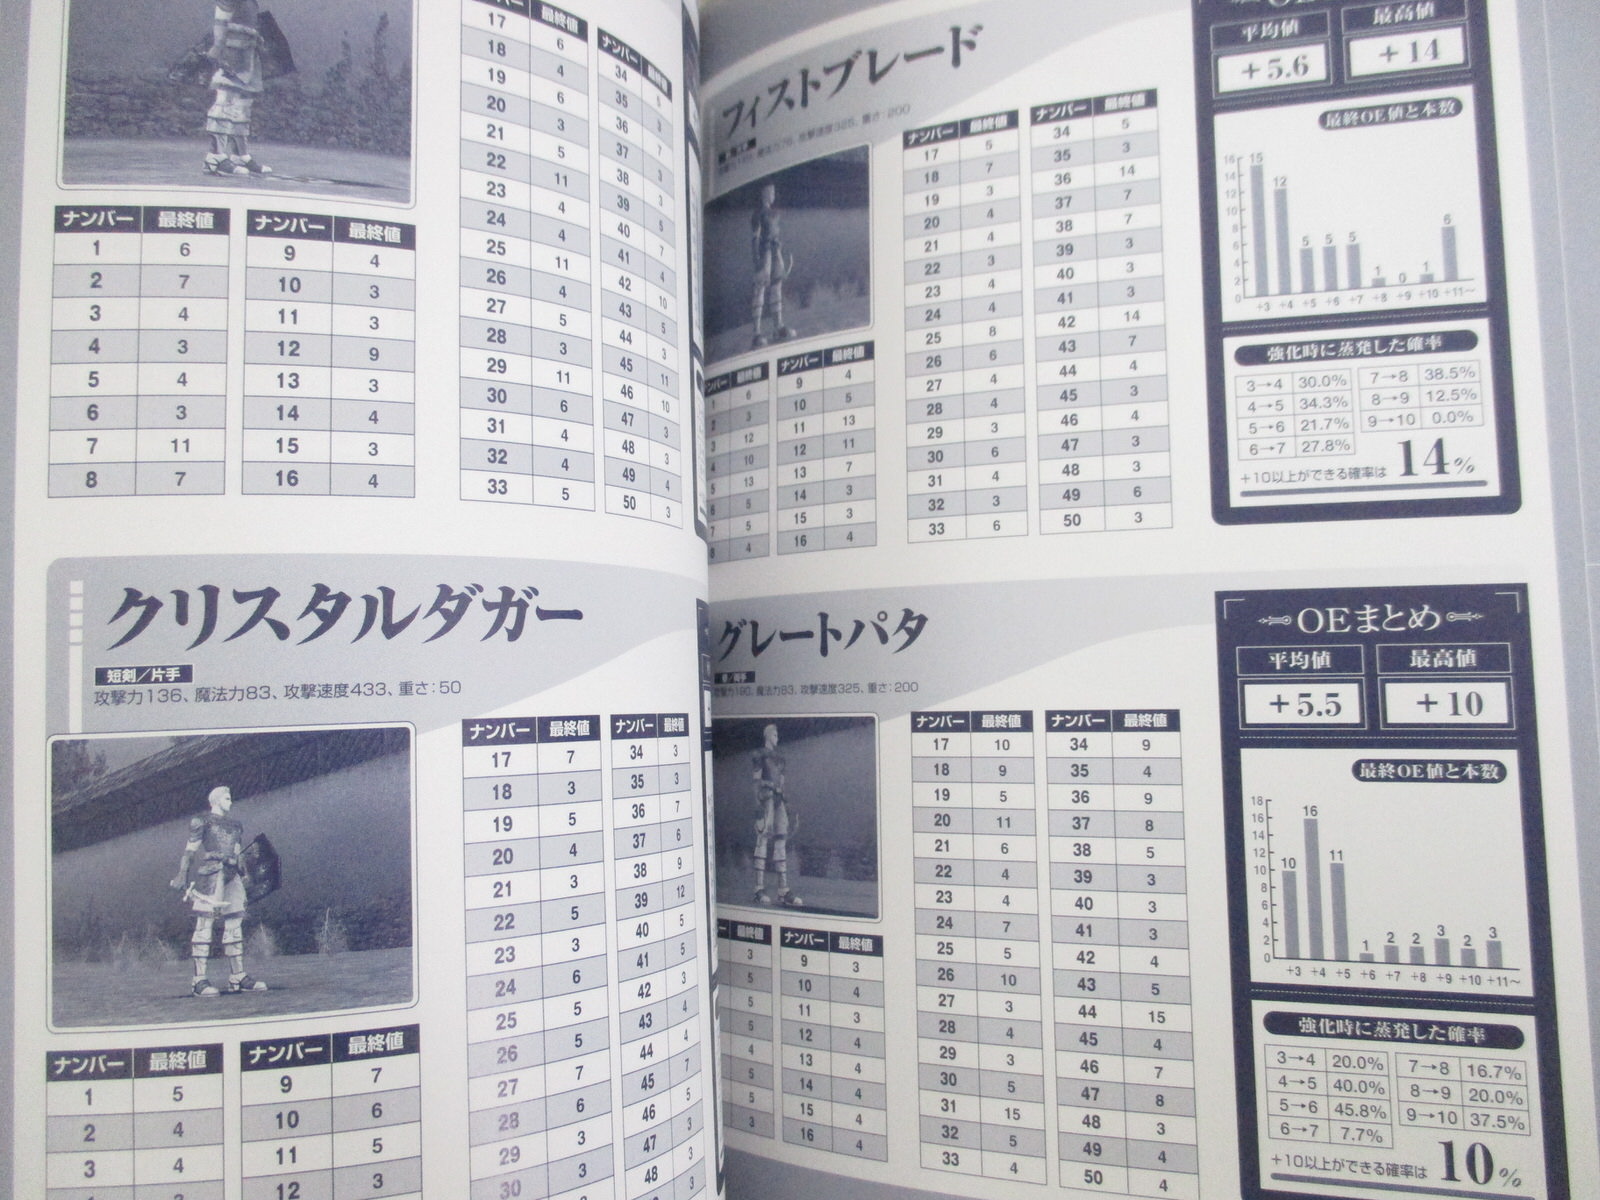 ナンバー 最終値
1 6
2 7
3 4
4 3
5 4
6 3
7 11
8 7
ナンバー 最終値
9 4
10 3
11 3
12 9
13 3
14 4
15 3
16 4
最終値
17 6
18 4
19 6
20 3
21 5
22 11
23 4
24 4
25 11
26 4
27 5
28 3
29 11
30 6
31 4
32 4
33 5
ナンバー 最終値
34 5
35 3
36 7
37 3
38 3
39 5
40 7
41 4
42 10
43 5
44 3
45 11
46 10
47 3
48 3
49 4
50 3
クリスタルダガー
短剣/片手
攻撃力136、魔法力83、攻撃速度433、重さ:50
ナンバー 最終値
1 5
2 4
3 4
ナンバー 最終値
9 7
10 6
11 5
12 3
ナンバー 最終値
17 7
18 3
19 5
20 4
21 3
22 5
23 3
24 6
25 5
26 5
27 7
28 6
29 3
30 3
ナンバー 最終値
34 3
35 3
36 7
37 6
38 9
39 12
40 5
41 5
42 3
43 4
44 4
45 7
46 5
47 3
48 3
フィストブレード
攻撃速度325、重さ:200
最終値
1 6
2 3
3 12
4 10
5 13
6 5
7 5
8 4
ナンバー 最終値
9 4
10 5
11 13
12 11
13 7
14 3
15 3
16 4
ナンバー 最終値
17 5
18 7
19 3
20 4
21 4
22 3
23 4
24 4
25 8
26 6
27 4
28 4
29 3
30 6
31 4
32 3
33 6
ナンバー 最終値
34 5
35 3
36 14
37 7
38 7
39 3
40 3
41 3
42 14
43 7
44 4
45 3
46 4
47 3
48 3
49 6
50 3
平均値 最高値
+5.6 +14
最終OE値と本数
16 14 12 10 8 6 4 2 0
15 12 5 5 5 1 0 1 6
+3 +4 +5 +6 +7 +8 +9 +10 +11~
強化時に蒸発した確率
3→4 30.0% 7→8 38.5%
4→5 34.3% 8→9 12.5%
5→6 21.7% 9→10 0.0%
6→7 27.8%
+10以上ができる確率は 14%
グレートパタ
魔法力83、攻撃速度325、重さ:200
最終値
3
5
5
5
4
5
5
3
ナンバー 最終値
9 3
10 4
11 3
12 4
13 4
14 4
15 4
16 4
ナンバー 最終値
17 10
18 9
19 5
20 11
21 6
22 4
23 4
24 7
25 5
26 10
27 3
28 4
29 3
30 5
31 15
32 5
33 4
ナンバー 最終値
34 9
35 4
36 9
37 8
38 5
39 3
40 3
41 3
42 4
43 5
44 15
45 4
46 7
47 8
48 3
49 4
50 4
OEまとめ
平均値 最高値
+5.5 +10
最終OE値と本数
18 16 14 12 10 8 6 4 2 0
10 16 11 1 2 2 3 2 3
+3 +4 +5 +6 +7 +8 +9 +10 +11~
強化時に蒸発した確率
3→4 20.0% 7→8 16.7%
4→5 40.0% 8→9 20.0%
5→6 45.8% 9→10 37.5%
6→7 7.7%
+10以上ができる確率は 10%